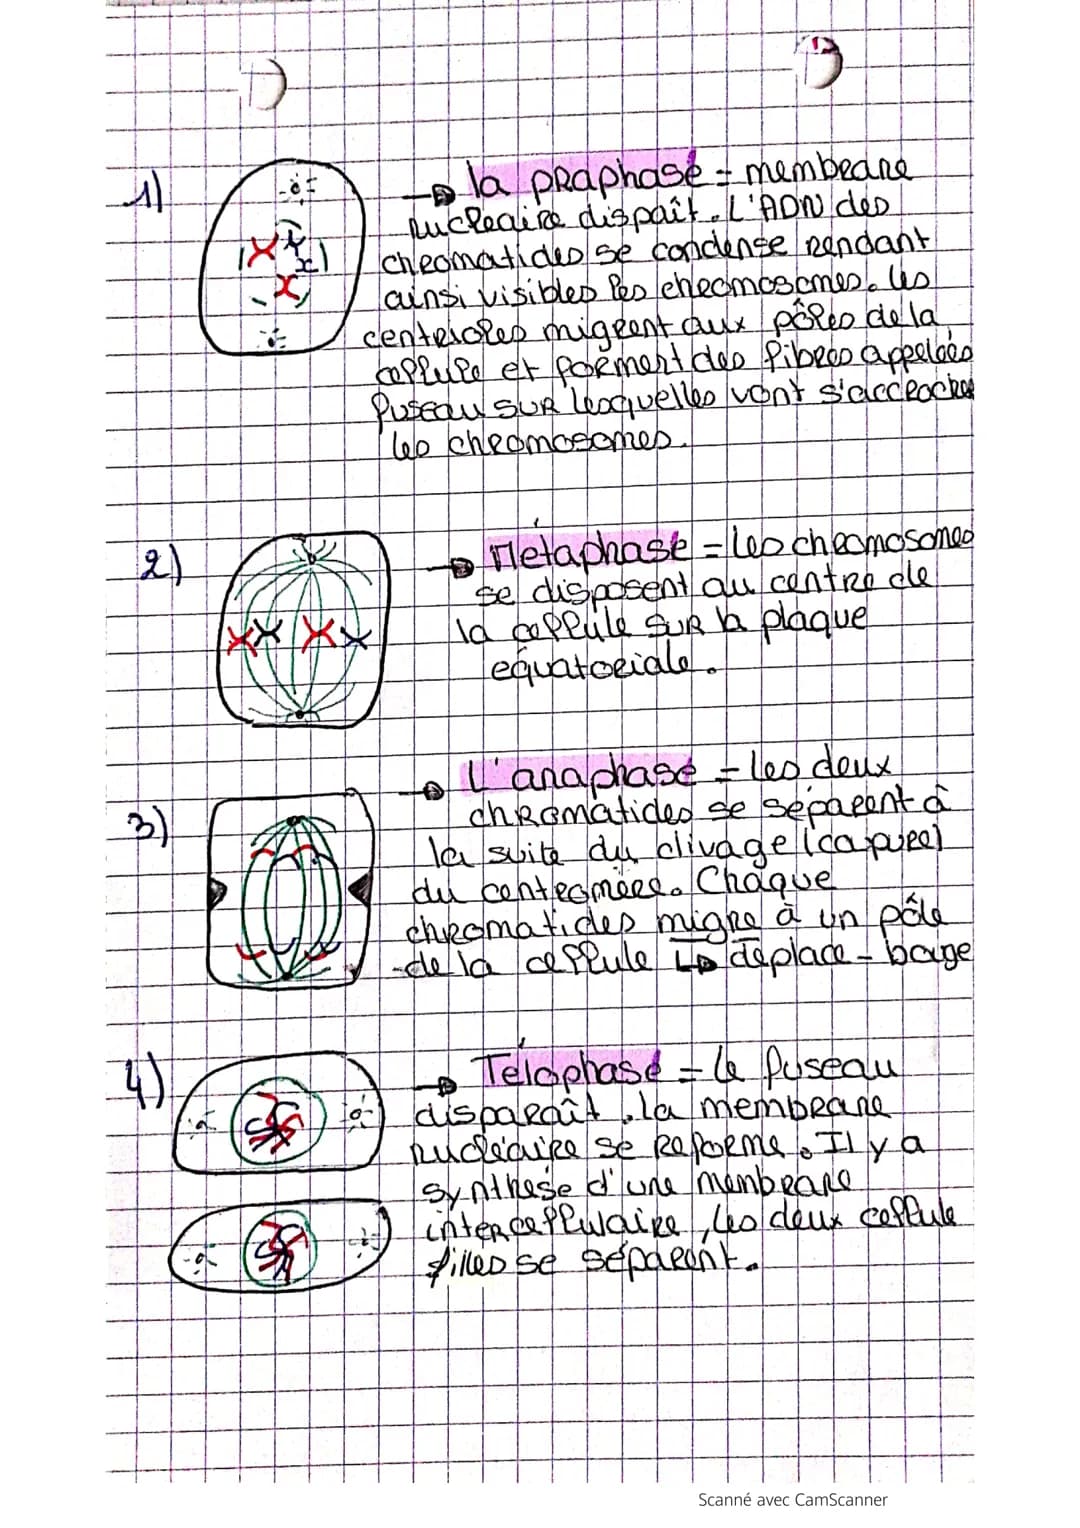 1)
→ la prophase = membrane
nucleaire dispaît. L'ADN des
chromatides se condense rendant
ainsi visibles les chromosomes. les
centrioles migrent aux pôles de la
cellule et forment des fibres appelées
fuseau sur lesquelles vont s'accrocher
les chromosomes.
2)
→ Métaphase = les chromosomes
se disposent au centre de
la cellule sur la plaque
équatoriale.
3)
→ L'anaphase = les deux
chromatides se séparent à
la suite du clivage (capure)
du centromère. Chaque
chromatides migre à un pôle
de la cellule ↳ déplace - bouge
4)
→ Télophase = le fuseau
disparaît. la membrane
nucléaire se reforme. Il y a
synthèse d'une membrane
intercellulaire, les deux cellule
filles se séparent.
Scanné avec CamScanner